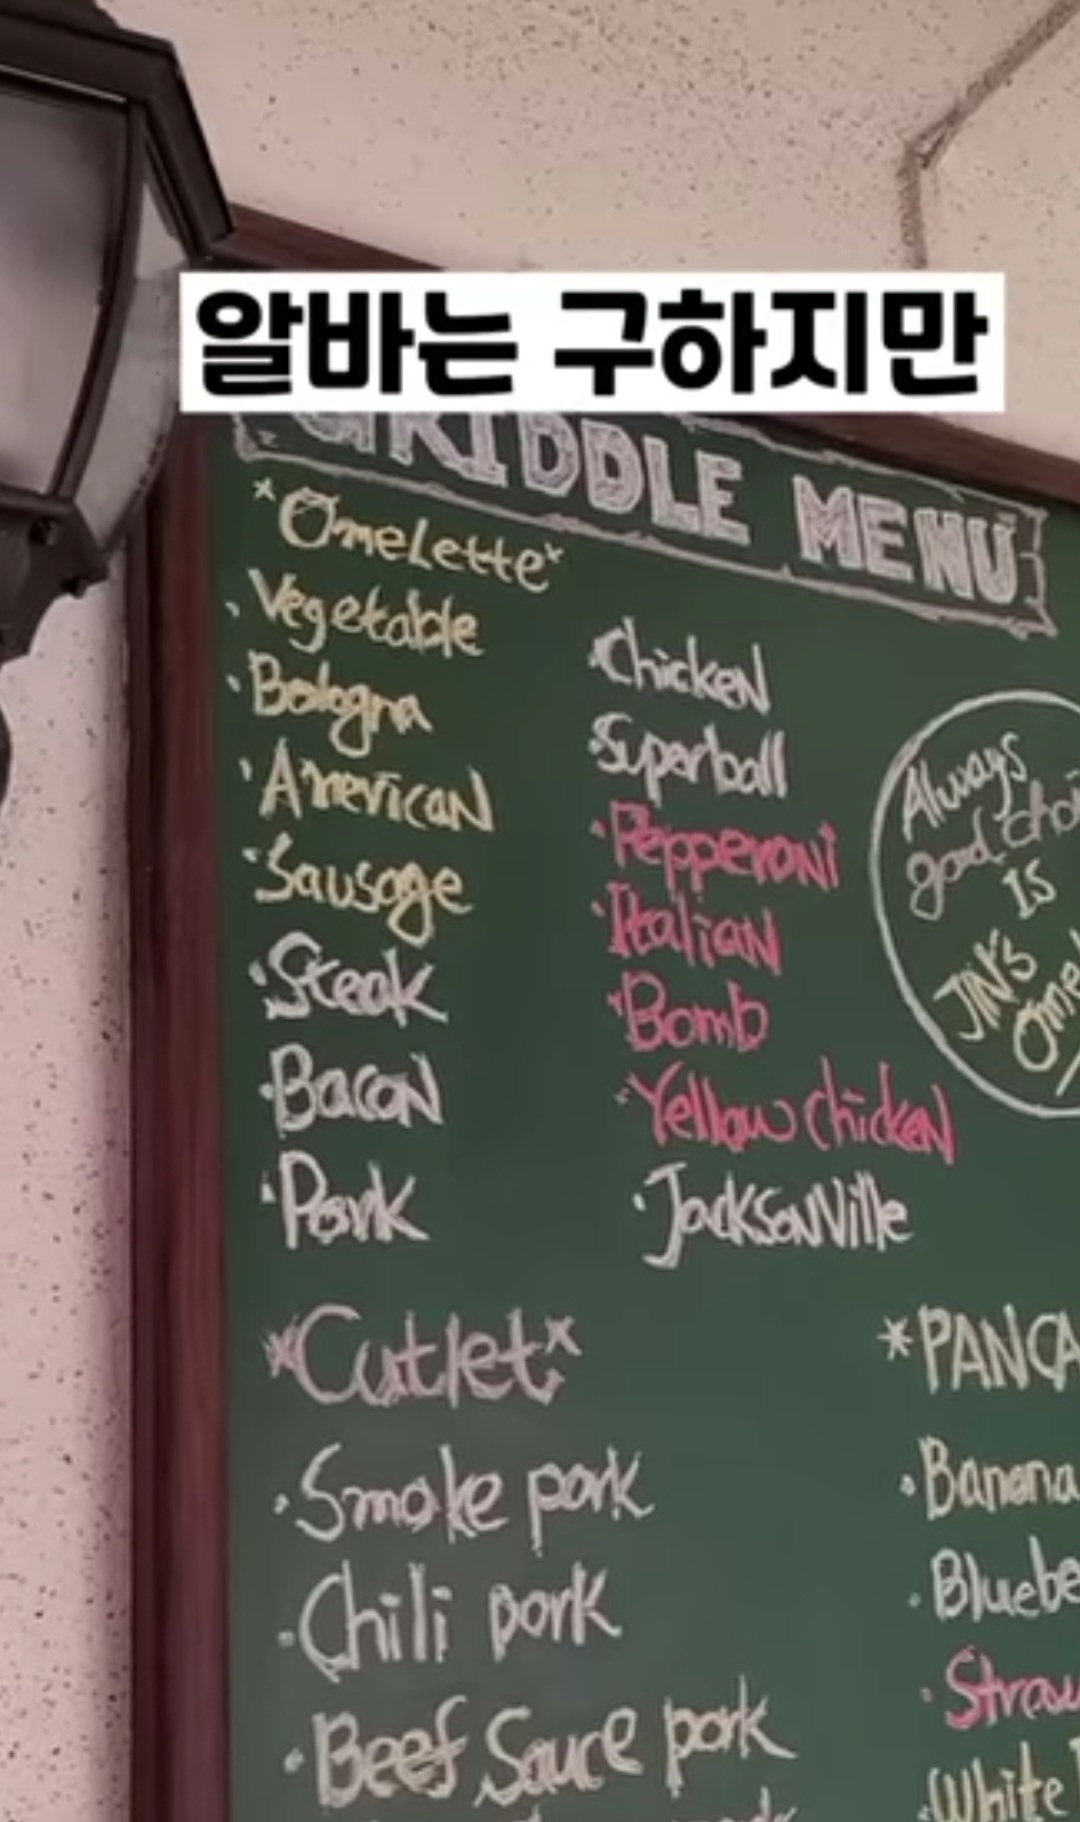 알바는 구하지만
GRIDDLE MENU
*Omelette*
· Vegetable
· Bologna
· American
· Sausage
· Steak
· Bacon
· Pork
· Chicken
· Superball
· Pepperoni
· Italian
· Bomb
· Yellow chicken
· Jacksonville
Always
good
IS
JIN'S
*Cutlet*
· Smoke pork
· Chili pork
· Beef Sauce pork
*PANCA
· Banana
· Bluebe
· Straw
· White